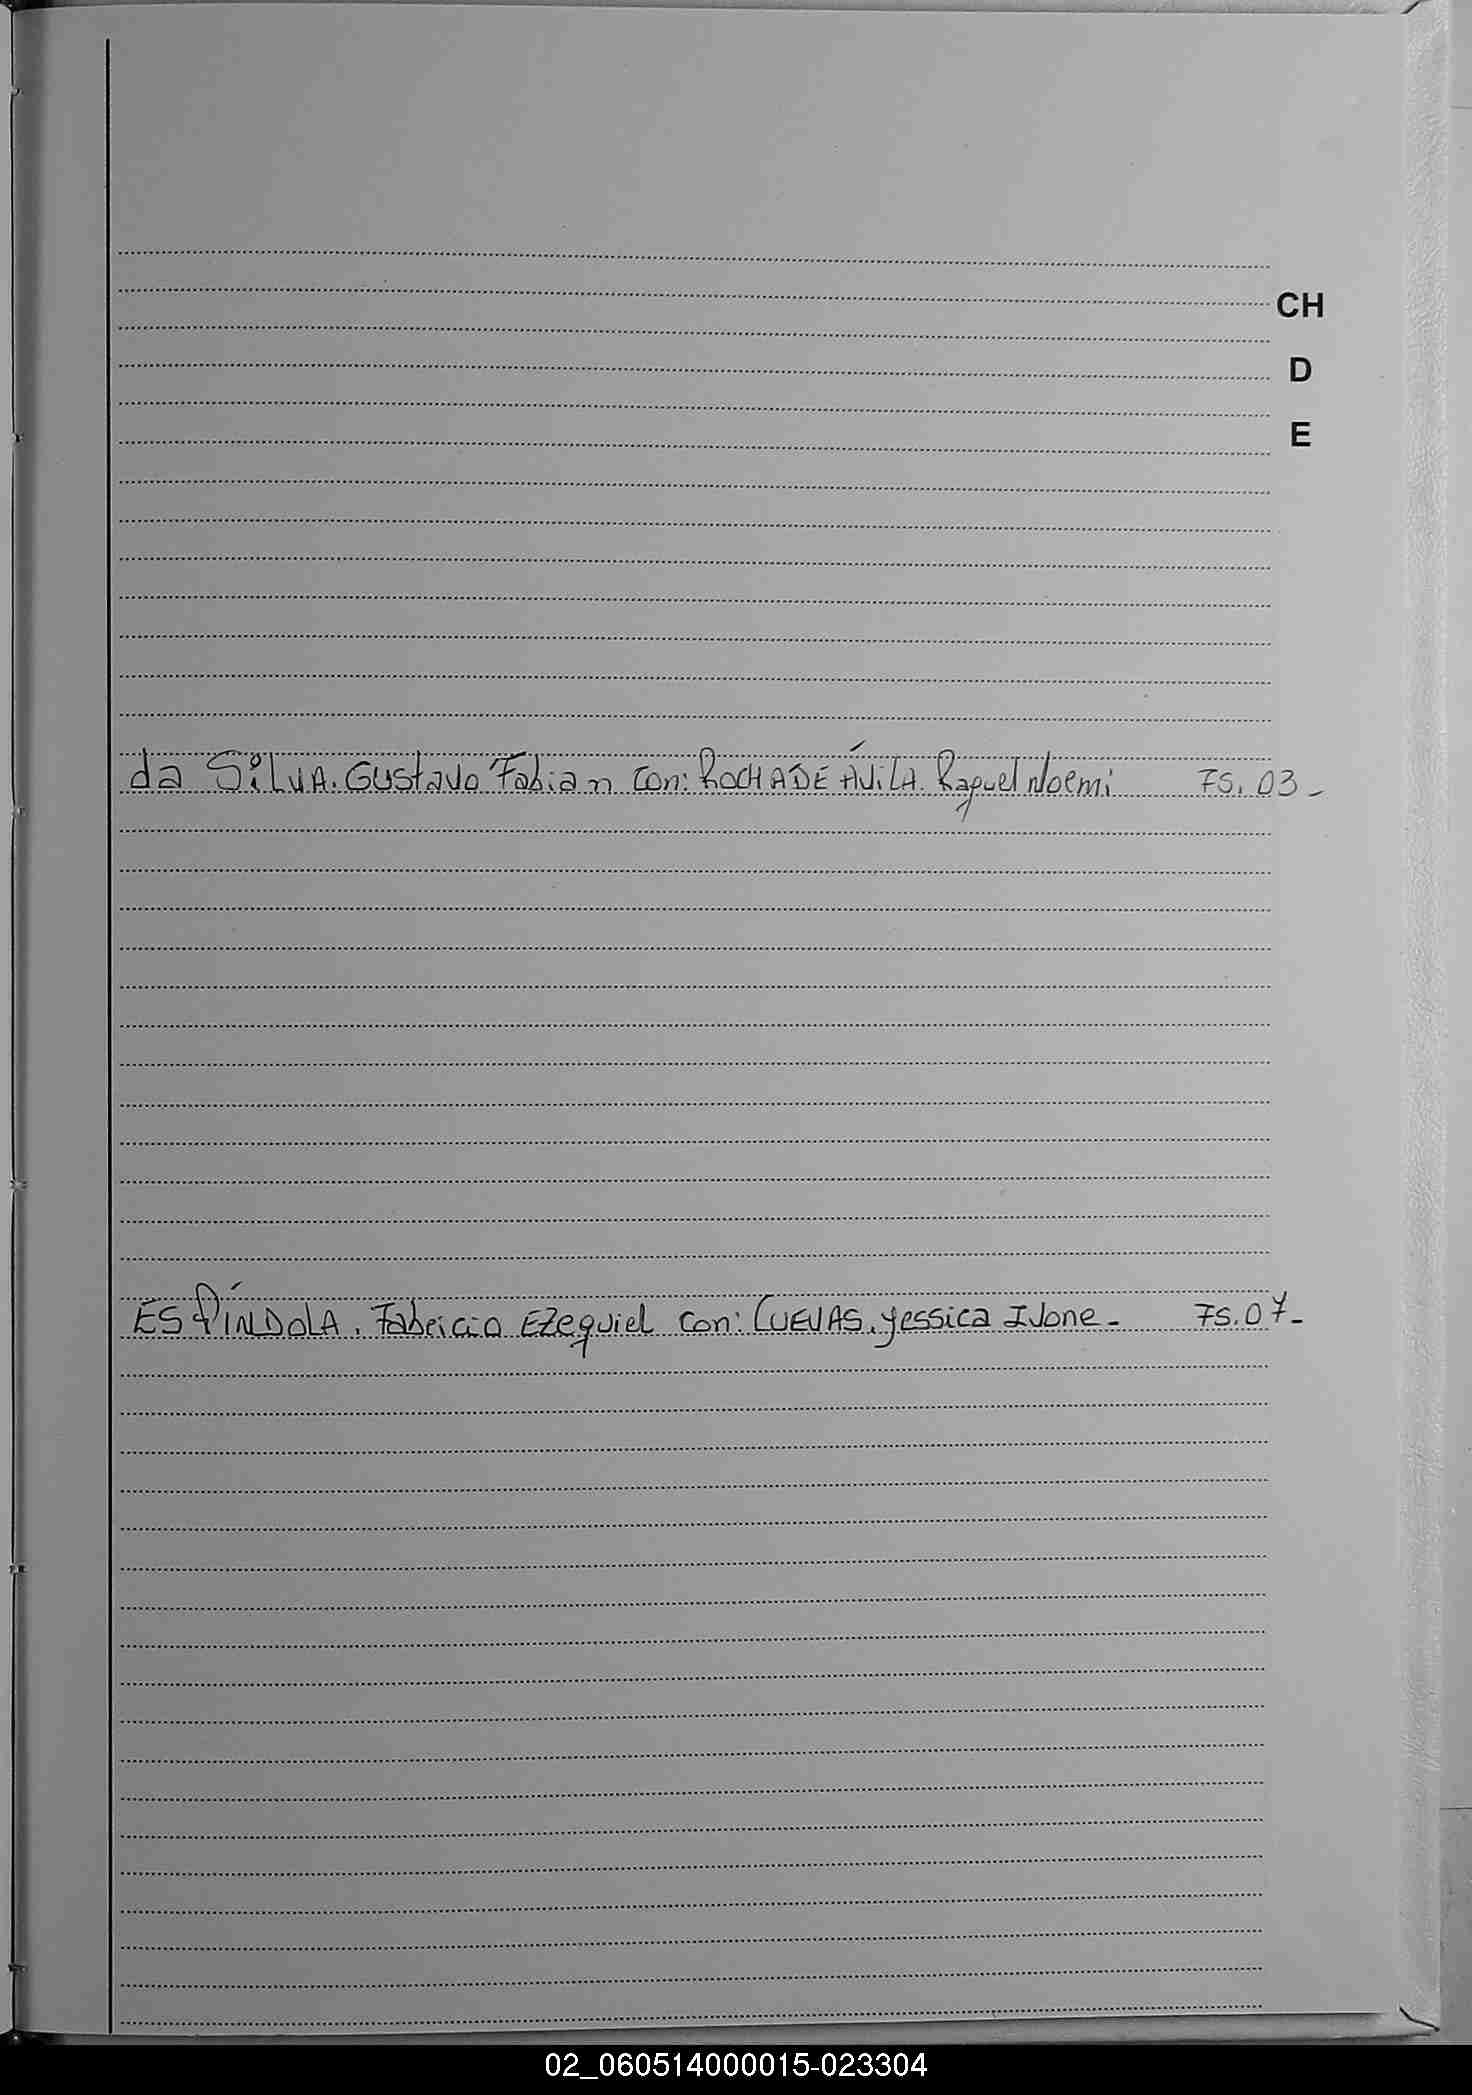 CH
D
E
da SilVA. Gustavo Fabian con: ROCHA DE ÁViLA. Raquel Noemi FS. 03-
ESPÍNDOLA. Fabricio Ezequiel con: CUEVAS. Yessica Ivone- FS. 07-
02_060514000015-023304